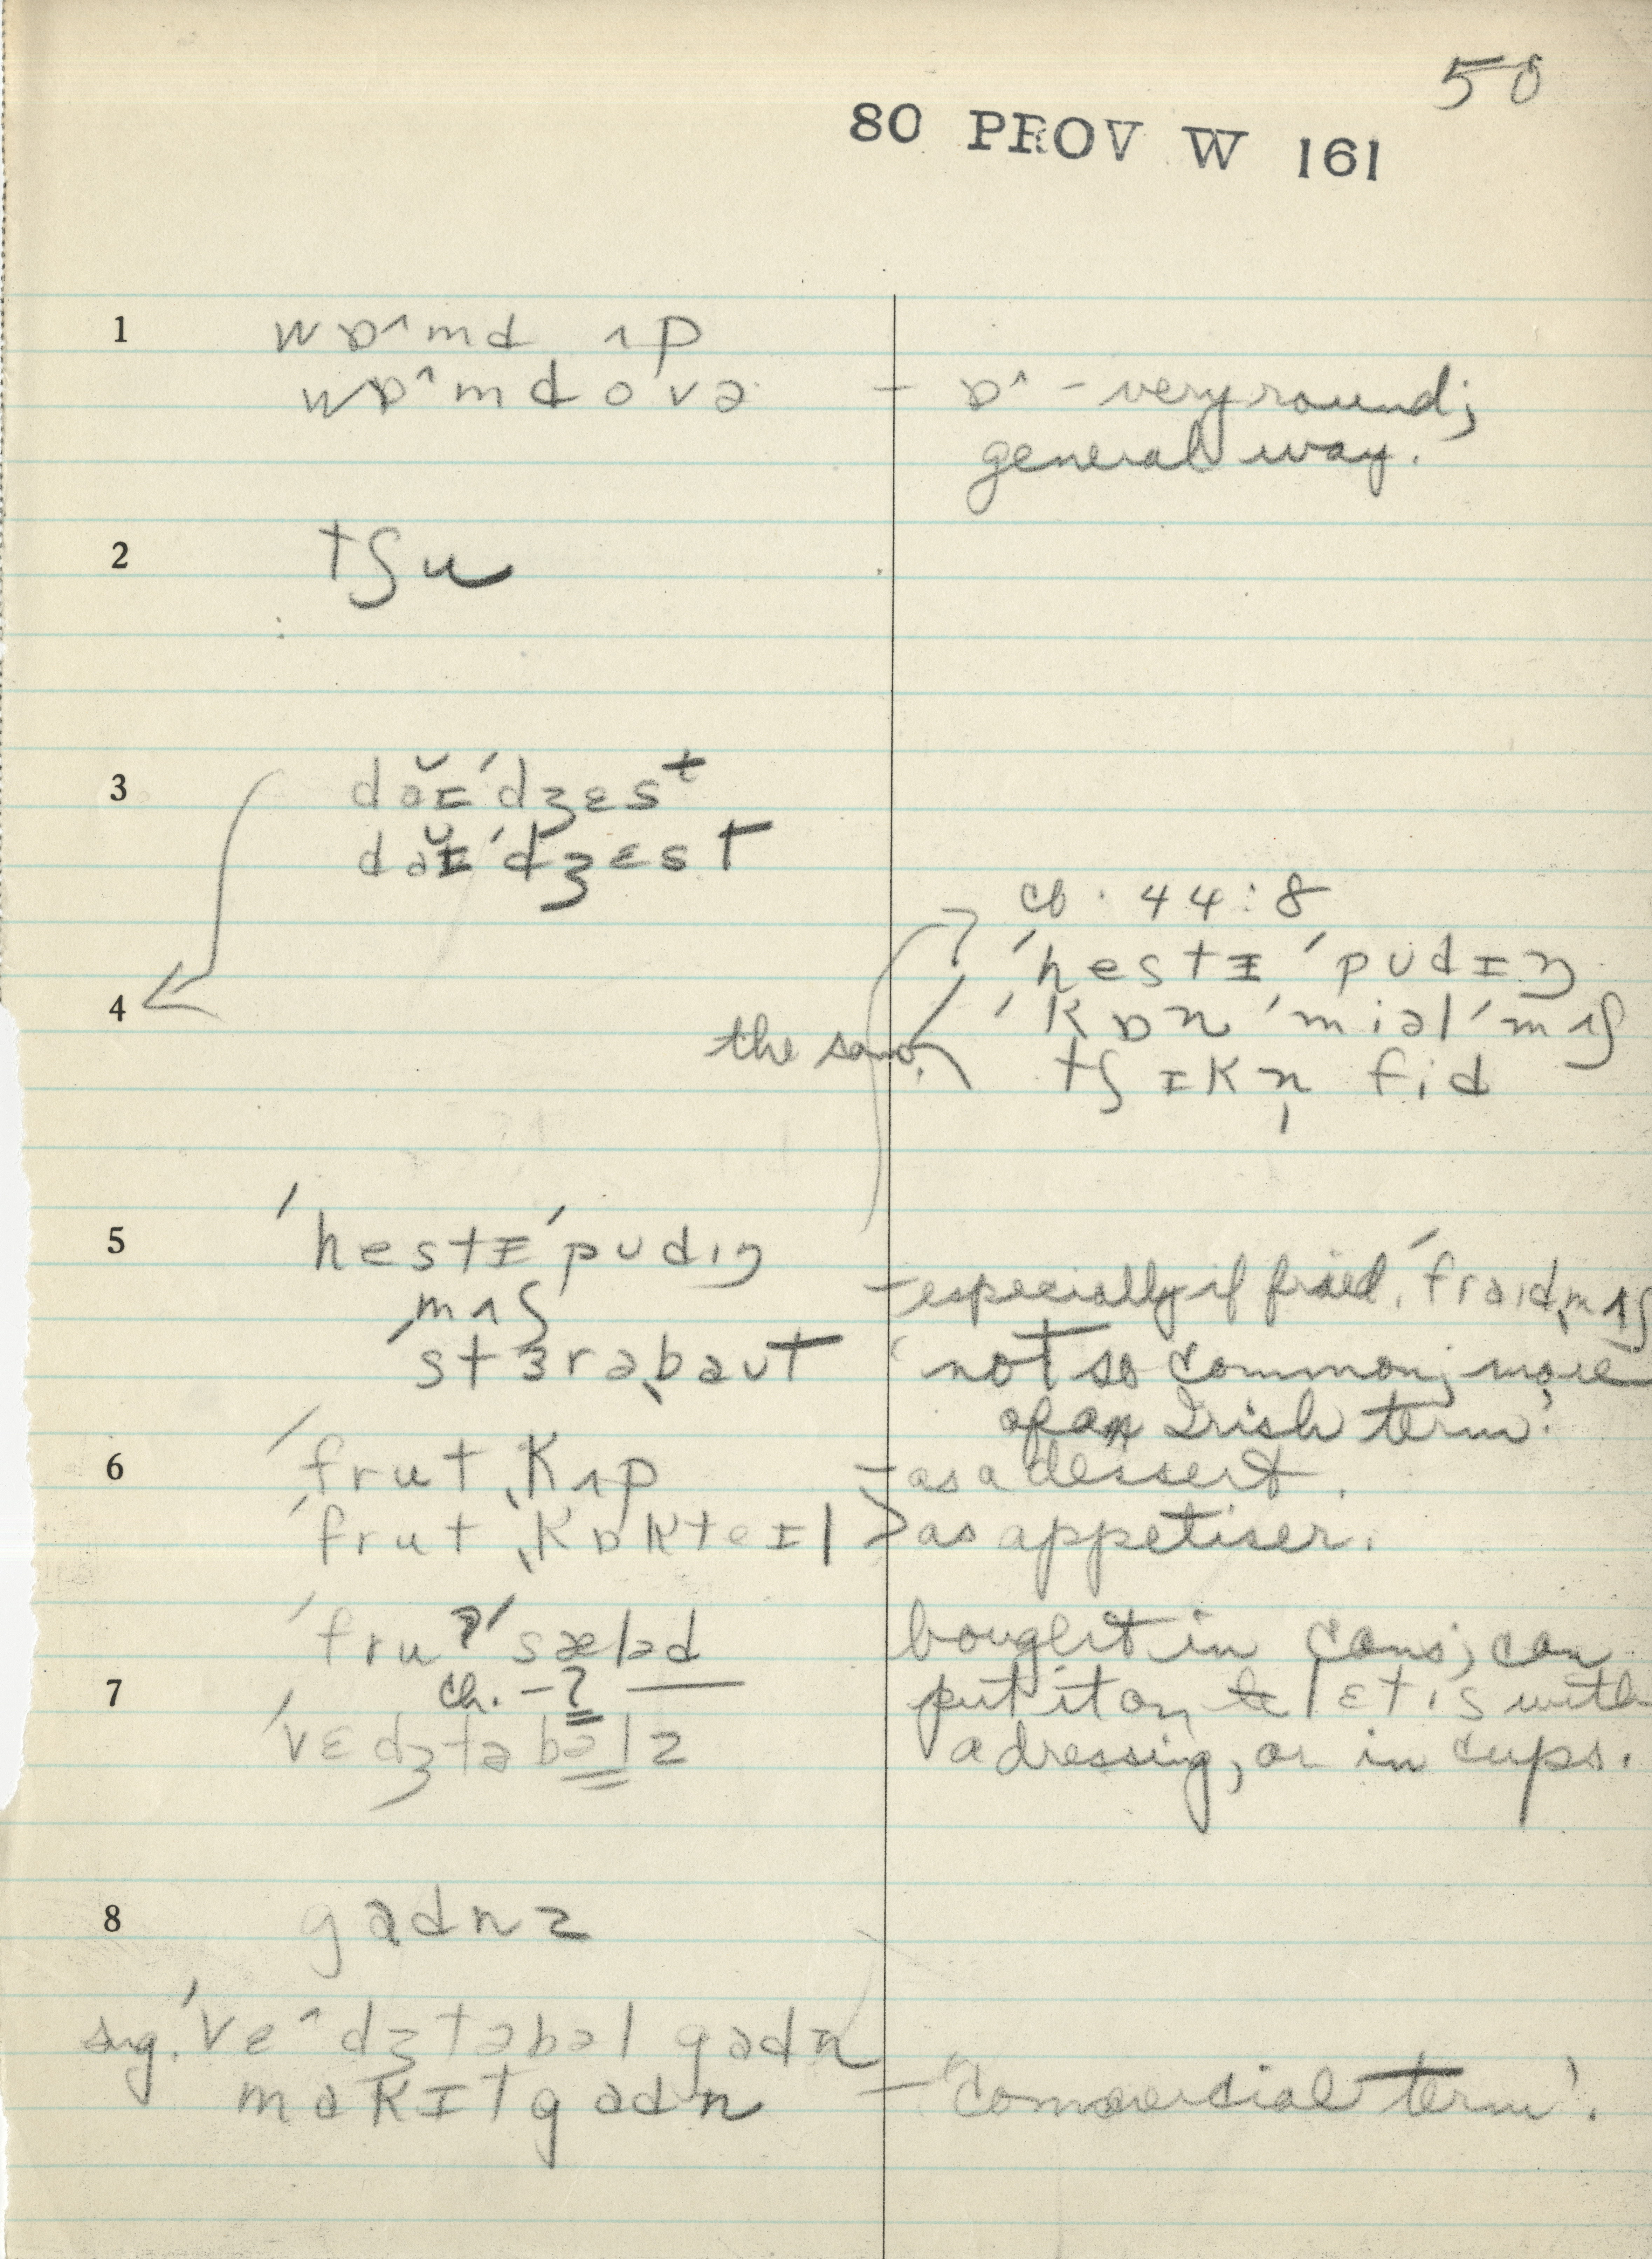 50
80 PROV W 161
1 wɒ^md ʌp
wɒ^md ovə - ɒ^ - very round;
general way.
2 tʃu
3 dəɪ̆ˈdʒɛst
dəɪ̆ˈdʒɛst
cf. 44:8
ˈhestɪ ˈpudɪŋ
4 ˈkɒn ˈmiəl ˈmʌʃ
the same. tʃɪkn̩ fid
5 ˈhestɪˈpudɪŋ
mʌʃ - especially if fried, ˈfraɪdˌmʌʃ
ˈstɜrəˌbaut 'not so common; more
of an Irish term.'
6 ˈfrut ˌkʌp - as a dessert.
ˈfrut ˌkɒkteɪl > as appetiser.
ˈfruʔˈsæləd bought in cans; can
7 ch. - ʔ put it on lɛtɪs with
ˈvɛdʒtəbəlz a dressing, or in cups.
8 gadnz
sug. ˈvɛ^dʒtəbəl gadn
makɪt gadn - 'commercial term'.